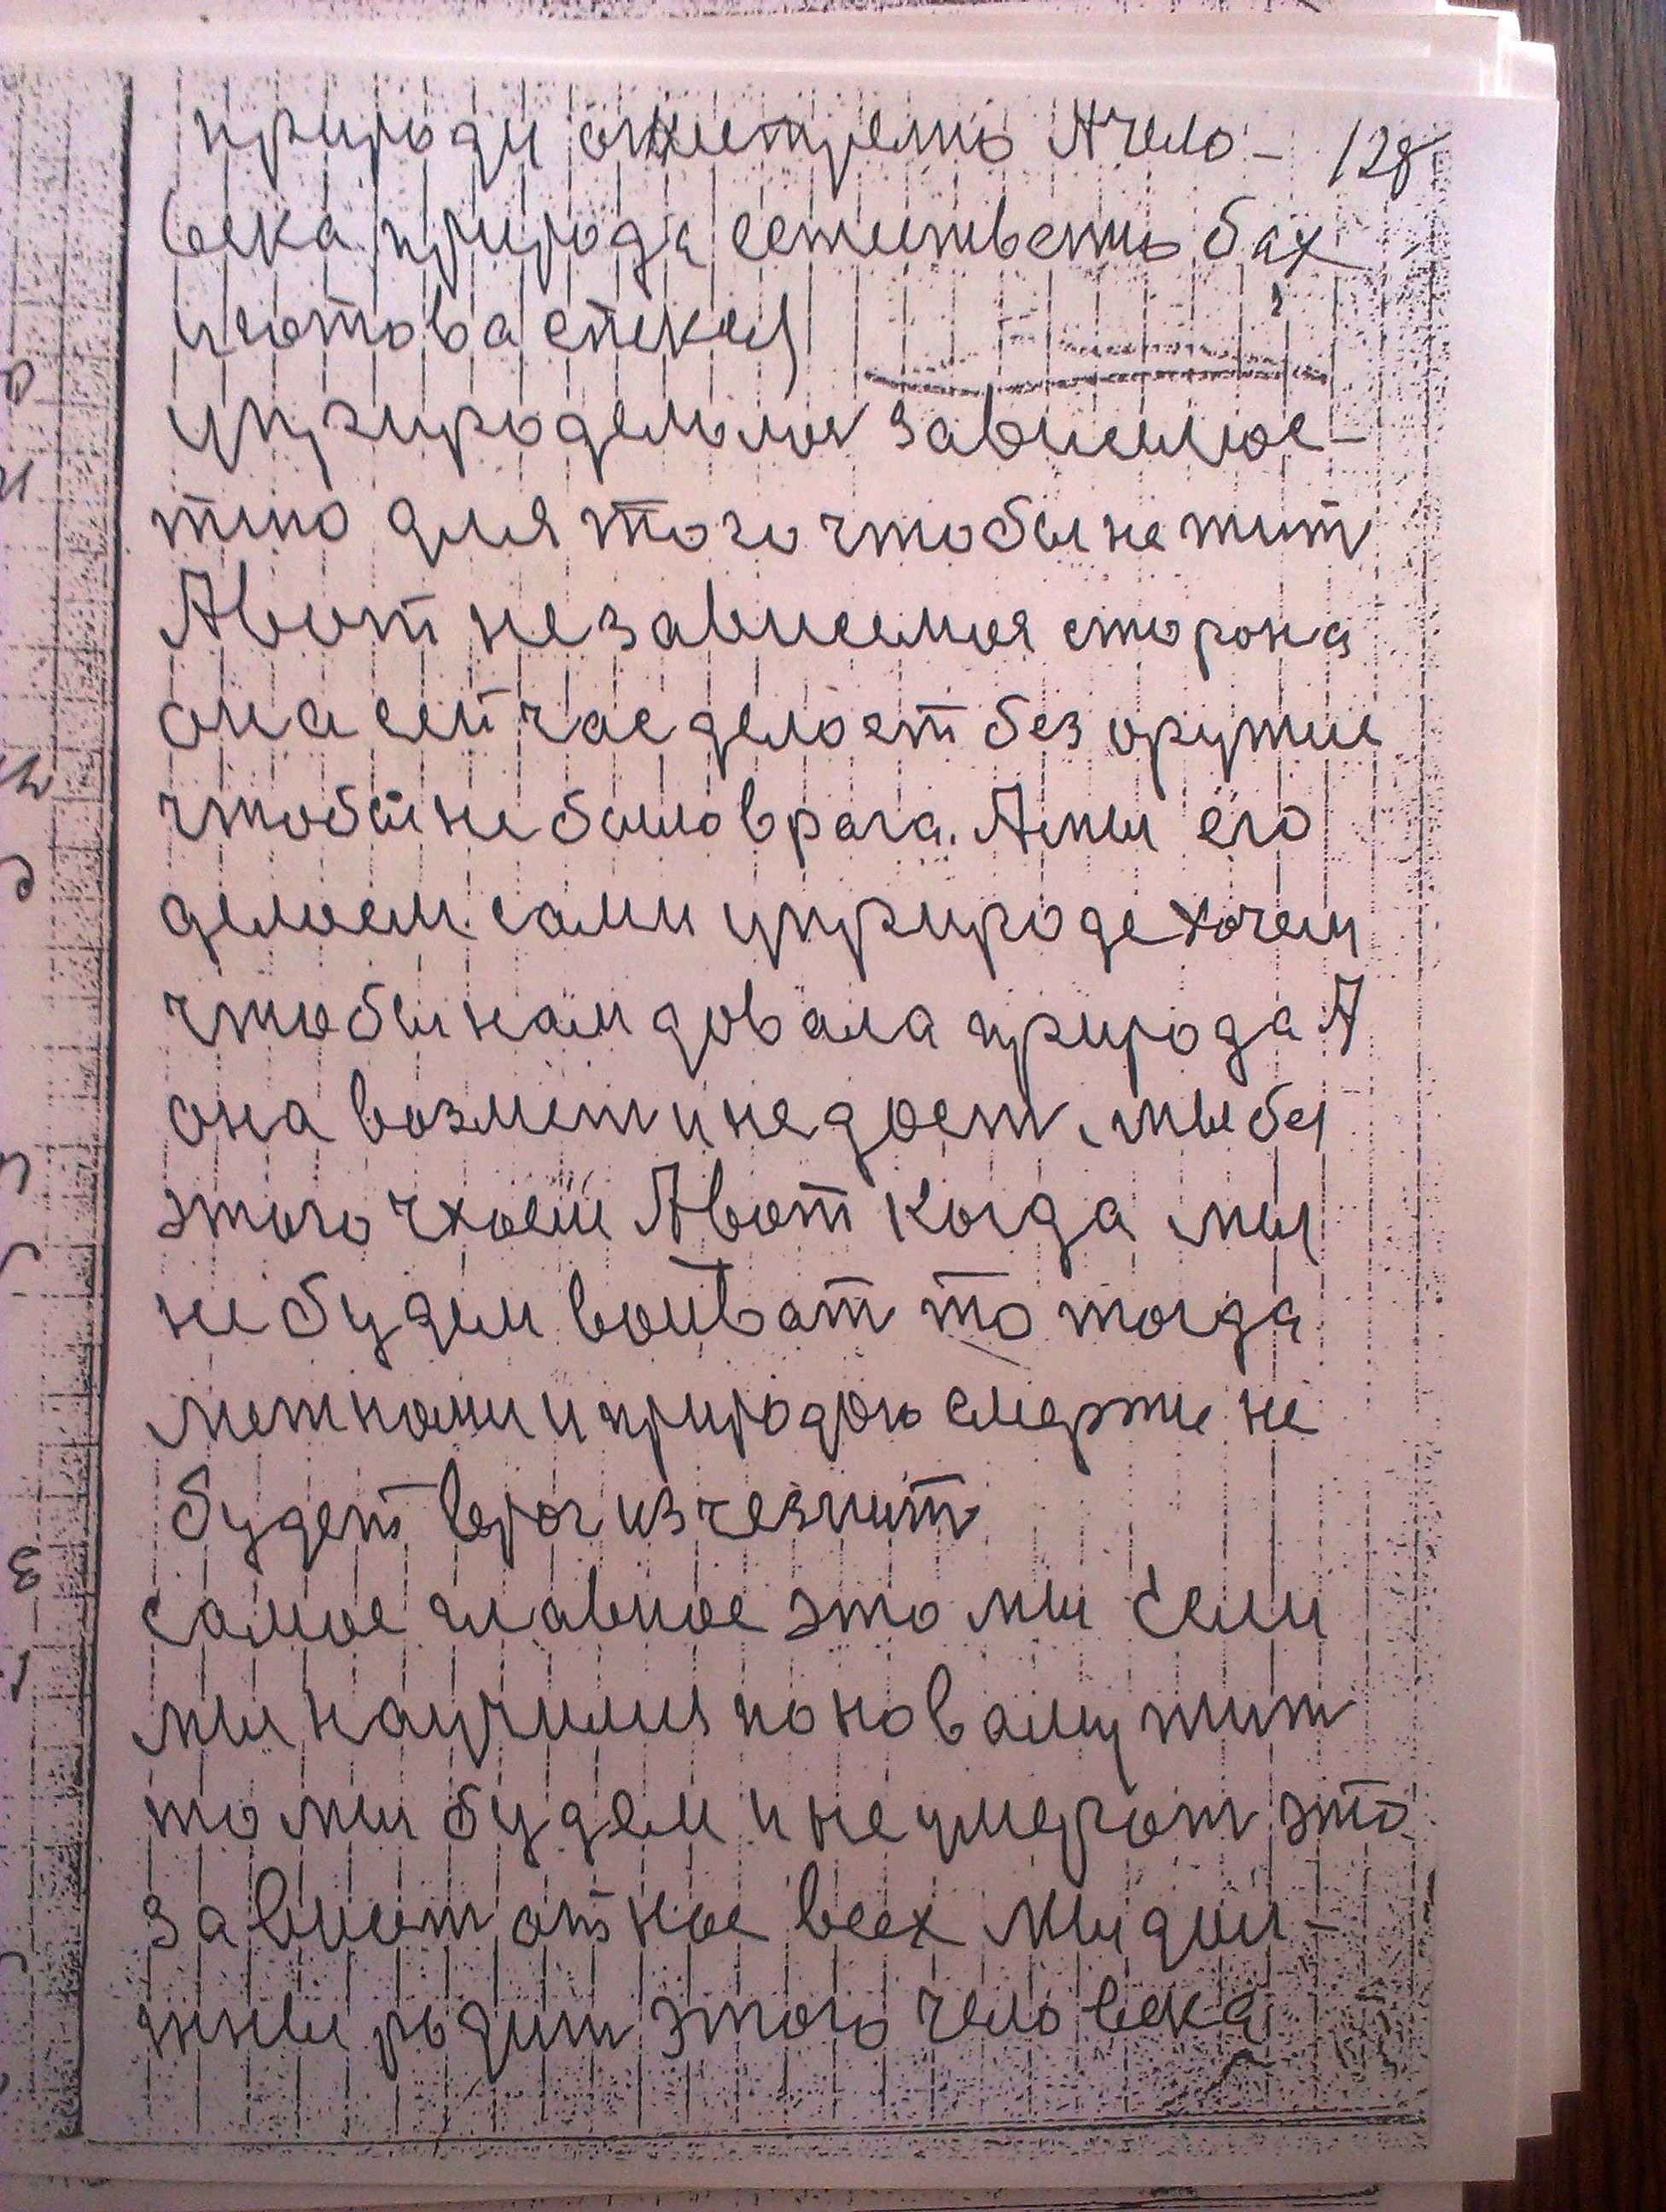 природи Ачело- 128
века природа бах
и готова
уприроде зависемос-
тию для того чтобы не жит
Авот независемоя сторона
она сей час делоет без оружие
чтобы не было врага. Амы его
делоем соми уприроде хочем
чтобы нам довала природа А
она возмет и не доет. мы бы
этого Авот когда мы
не будем воиват то тогда
меж номи и природою смерти не
будет врог изчезнит
самое главное это мы Если
мы научимся по новаму жит
то мы будем и не умерат это
зависит от нос всех мы дол-
жны родит этого человека